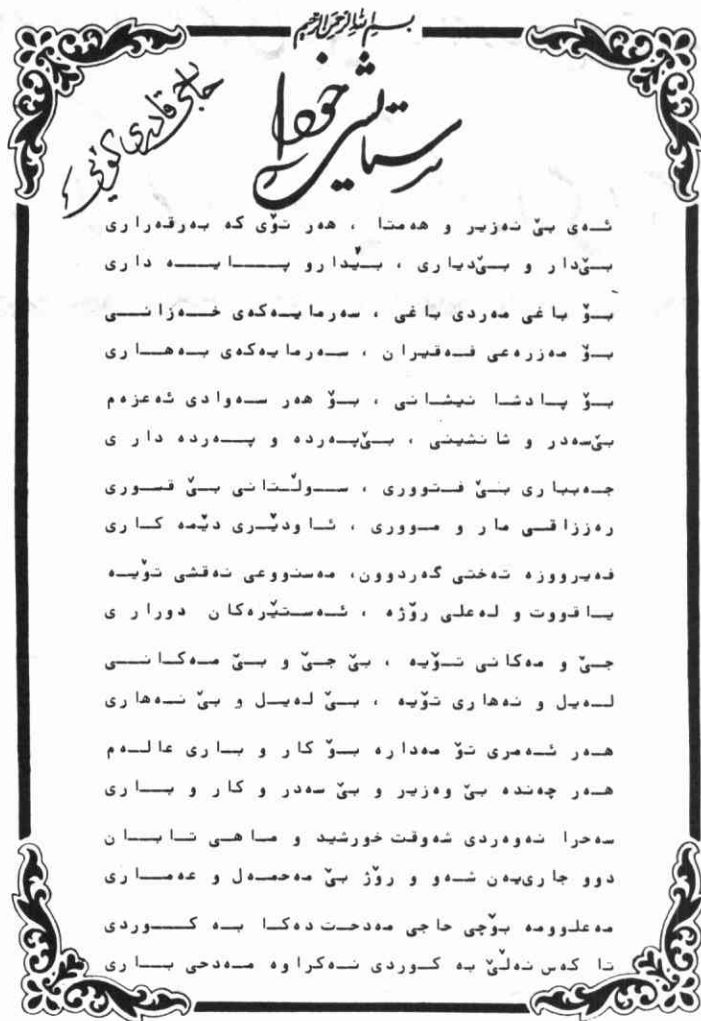 بسم الله الرحمن الرحیم
ستایشی خودا
حاجی قادری کۆیی
ئەی بێ نەزیر و هەمتا ، هەر تۆی کە بەرقەراری
بێ‌دار و بێ‌دیاری ، بێدارو پایە داری
بۆ باغی مەردی باغی ، سەرمایەکەی خەزانی
بۆ مەزرەعی فەقیران ، سەرمایەکەی بەهاری
بۆ پادشا نیشانی ، بۆ هەر سەوادی ئەعزەم
بێ‌سەدر و شانشینی ، بێ‌پەردە و پەردە داری
جەبباری بێ فتووری ، سوڵتانی بێ قسوری
رەززاقی مار و مووری ، ئاودێری دێمە کاری
فەیرووزە تەختی گەردوون، مەسنووعی نەقشی تۆیە
یاقووت و لەعلی رۆژە ، ئەستێرەکان دوراری
جێ و مەکانی تۆیە ، بێ جێ و بێ مەکانی
لەیل و نەهاری تۆیە ، بێ لەیل و بێ نەهاری
هەر ئەمری تۆ مەدارە بۆ کار و باری عالەم
هەر چەندە بێ وەزیر و بێ سەدر و کار و باری
سەحرا نەوەردی شەوقت خورشید و ماهی تابان
دوو جاری‌یەن شەو و رۆژ بێ مەحمەل و عەماری
مەعلوومە بۆچی حاجی مەدحت دەکا بە کوردی
تا کەس نەڵێ بە کوردی نەکراوە مەدحی باری